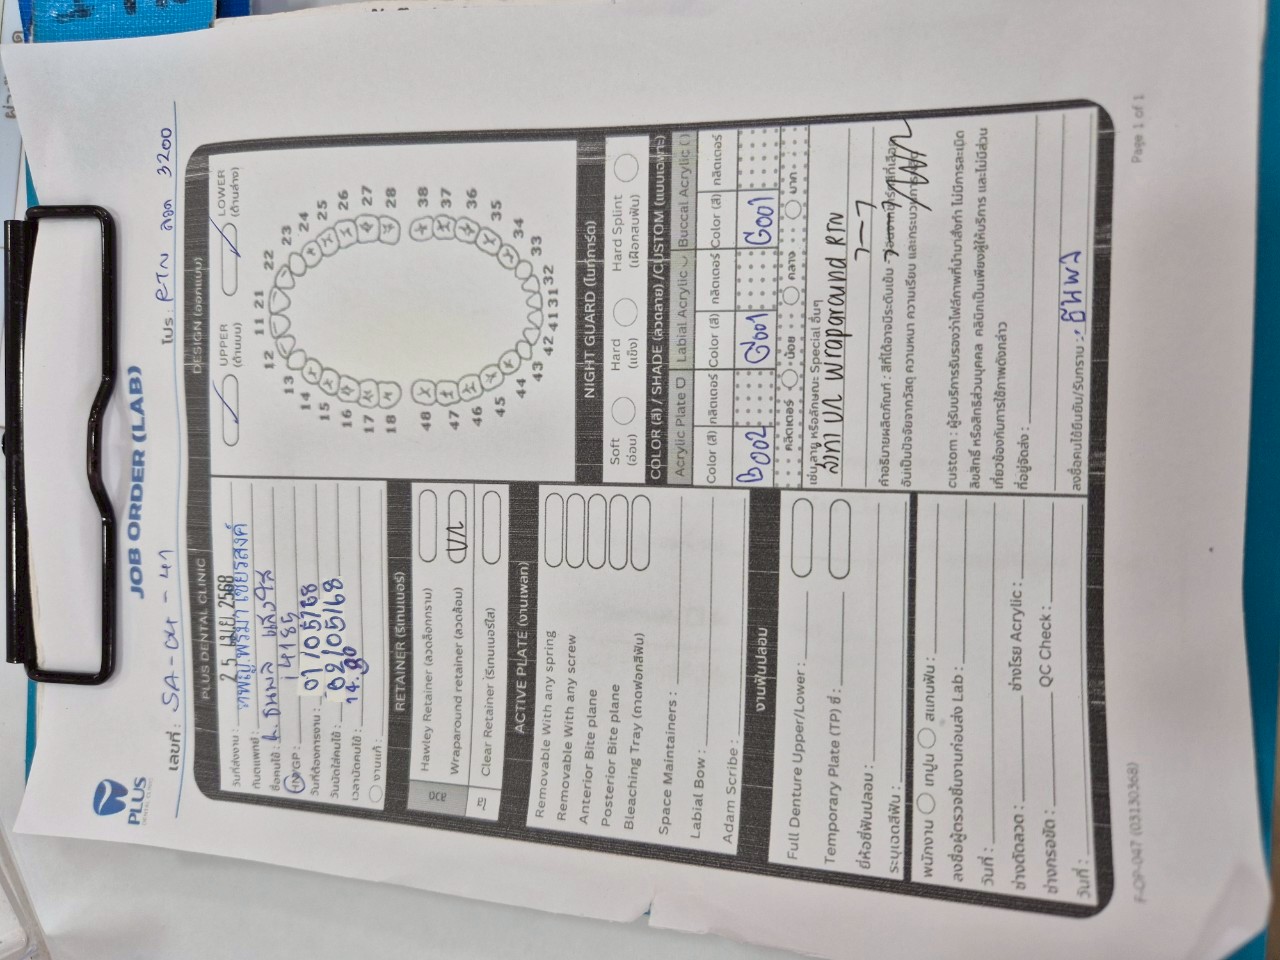 PLUS
DENTAL CLINIC
JOB ORDER (LAB)
เลขที่ : SA - 04 - 41
โปร : RTN ลวด 3200
PLUS DENTAL CLINIC
วันที่ส่งงาน : 25 เม.ย. 2568
ทันตแพทย์ :
ชื่อคนไข้ :
HN/GP :
วันที่ต้องการงาน : 01/05/68
วันนัดใส่คนไข้ : 02/05/68
เวลานัดคนไข้ :
งานแก้ :
RETAINER (รีเทนเนอร์)
ลวด
Hawley Retainer (ลวดล็อกกราม)
Wraparound retainer (ลวดล้อม) บ/ล
ใส
Clear Retainer (รีเทนเนอร์ใส)
ACTIVE PLATE (งานเพลท)
Removable With any spring
Removable With any screw
Anterior Bite plane
Posterior Bite plane
Bleaching Tray (ถาดฟอกสีฟัน)
Space Maintainers :
Labial Bow :
Adam Scribe :
งานฟันปลอม
Full Denture Upper/Lower :
Temporary Plate (TP) ซี่ :
ยี่ห้อซี่ฟันปลอม :
ระบุเฉดสีฟัน :
พนักงาน เทปูน สแกนฟัน :
ลงชื่อผู้ตรวจชิ้นงานก่อนส่ง Lab :
วันที่ :
ช่างดัดลวด : ช่างโรย Acrylic :
ช่างกรอขัด : QC Check :
วันที่ :
DESIGN (ออกแบบ)
UPPER (ด้านบน)
LOWER (ด้านล่าง)
11 21
12 22
13 23
14 24
15 25
16 26
17 27
18 28
48 38
47 37
46 36
45 35
44 34
43 33
42 41 31 32
NIGHT GUARD (ไนท์การ์ด)
Soft (อ่อน)
Hard (แข็ง)
Hard Splint (เฝือกสบฟัน)
COLOR (สี) / SHADE (ลวดลาย) /CUSTOM (แบบเฉพาะ)
Acrylic Plate Labial Acrylic Buccal Acrylic ( )
Color (สี) กลิตเตอร์ Color (สี) กลิตเตอร์ Color (สี) กลิตเตอร์
B002 G001 G001
กลิตเตอร์ น้อย กลาง มาก
เช่น,ลาย หรือลักษณะ Special อื่นๆ
บ/ล wraparound RTN
7-7
คำอธิบายผลิตภัณฑ์ : สีที่ได้อาจมีระดับเข้ม
อันเป็นปัจจัยจากวัสดุ ความหนา ความเรียบ และกระบวนการผลิต
custom : ผู้รับบริการรับรองว่าไฟล์ภาพที่นำมาสั่งทำ ไม่มีการละเมิด
ลิขสิทธิ์ หรือสิทธิส่วนบุคคล คลินิกเป็นเพียงผู้ให้บริการ และไม่มีส่วน
เกี่ยวข้องกับการใช้ภาพดังกล่าว
ที่อยู่จัดส่ง :
ลงชื่อคนไข้ยืนยัน/รับทราบ :
F-OP-047 (03130368)
Page 1 of 1